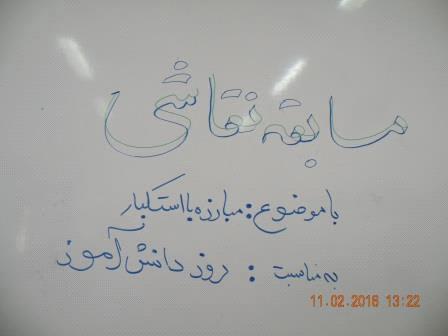 مسابقه نقاشی
با موضوع: مبارزه با استکبار
به مناسبت: روز دانش آموز
11.02.2016 13:22